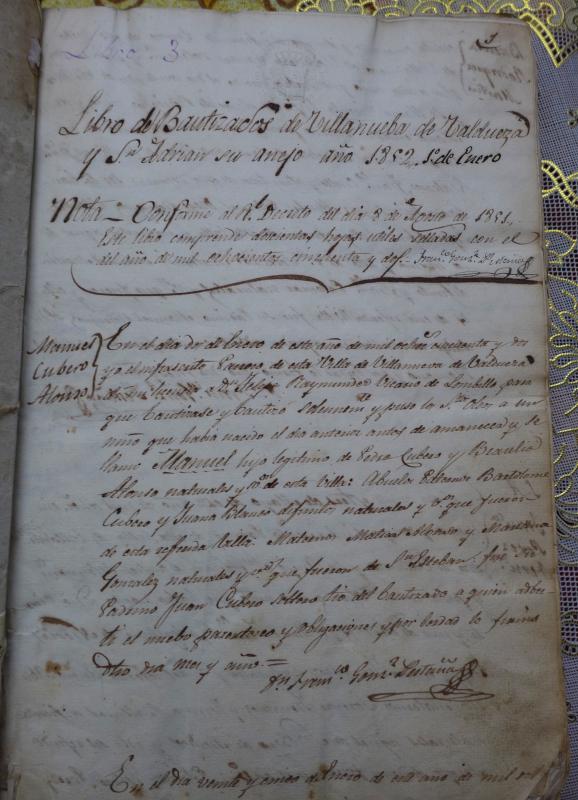 Libro 3
Libro de Bautizados de Villanueba de Valdueza
y Sn Adrian su anejo año 1852, 1º de Enero
Nota - Conforme al Rl Decreto del dia 8 de Agosto de 1851,
Este libro comprende doscientas hojas utiles selladas con el
del año de mil ochocientos cincuenta y dos
Manuel
Cubero
Alonso
En el dia dos de Enero de este año de mil ochoc.s cincuenta y dos
yo el infrascrito Parroco de esta Villa de Villanueva de Valdueza
di mi licencia a Dn Felipe Raymundez Vicario de Lombillo, para
que bautizase y bautizó solemnemte y puso los Stos Oleos a un
niño que habia nacido el dia anterior antes de amanecer y se
llamó Manuel hijo legitimo de Pedro Cubero y Braulia
Alonso naturales y v.os de esta Villa: Abuelos Paternos Bartolome
Cubero y Juana Blanco difuntos naturales y v.os que fueron
de esta referida Villa: Maternos Matias Alonso y Mariana
Gonzalez naturales y v.os que fueron de Sn Esteban: fue su
Padrino Juan Cubero soltero tio del Bautizado a quien adber
ti el nuebo parentesco y obligaciones y por berdad lo firmo
dho dia mes y año =
Dn Franco Gonz.z
En el dia veinte y cinco de Enero de este año de mil och